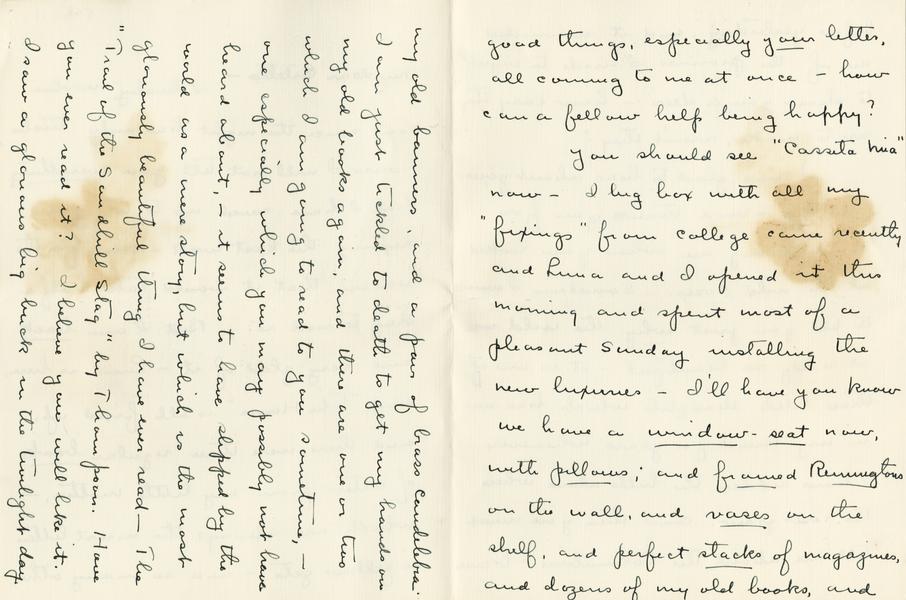 good things, especially your letter,
all coming to me at once – how
can a fellow help being happy?
You should see "Casseta Mia"
now – A big box with all my
"fixings" from college came recently
and Luna and I opened it this
morning and spent most of a
pleasant Sunday installing the
new luxuries – I'll have you know
we have a window-seat now,
with pillows; and framed Remingtons
on the wall, and vases on the
shelf, and perfect stacks of magazines,
and dozens of my old books, and
my old banners, and a pair of brass candelbra.
I am just tickled to death to get my hands on
my old books again, and there are one or two
which I am going to read to you sometime, –
one especially which you may possibly not have
heard about, – it seems to have slipped by the
world as a mere story, but which is the most
gloriously beautiful thing I have ever read – The
"Trail of the Sandhill Stag" by Thompson. Have
you ever read it? I believe you will like it.
I saw a glorious big buck in the twilight day